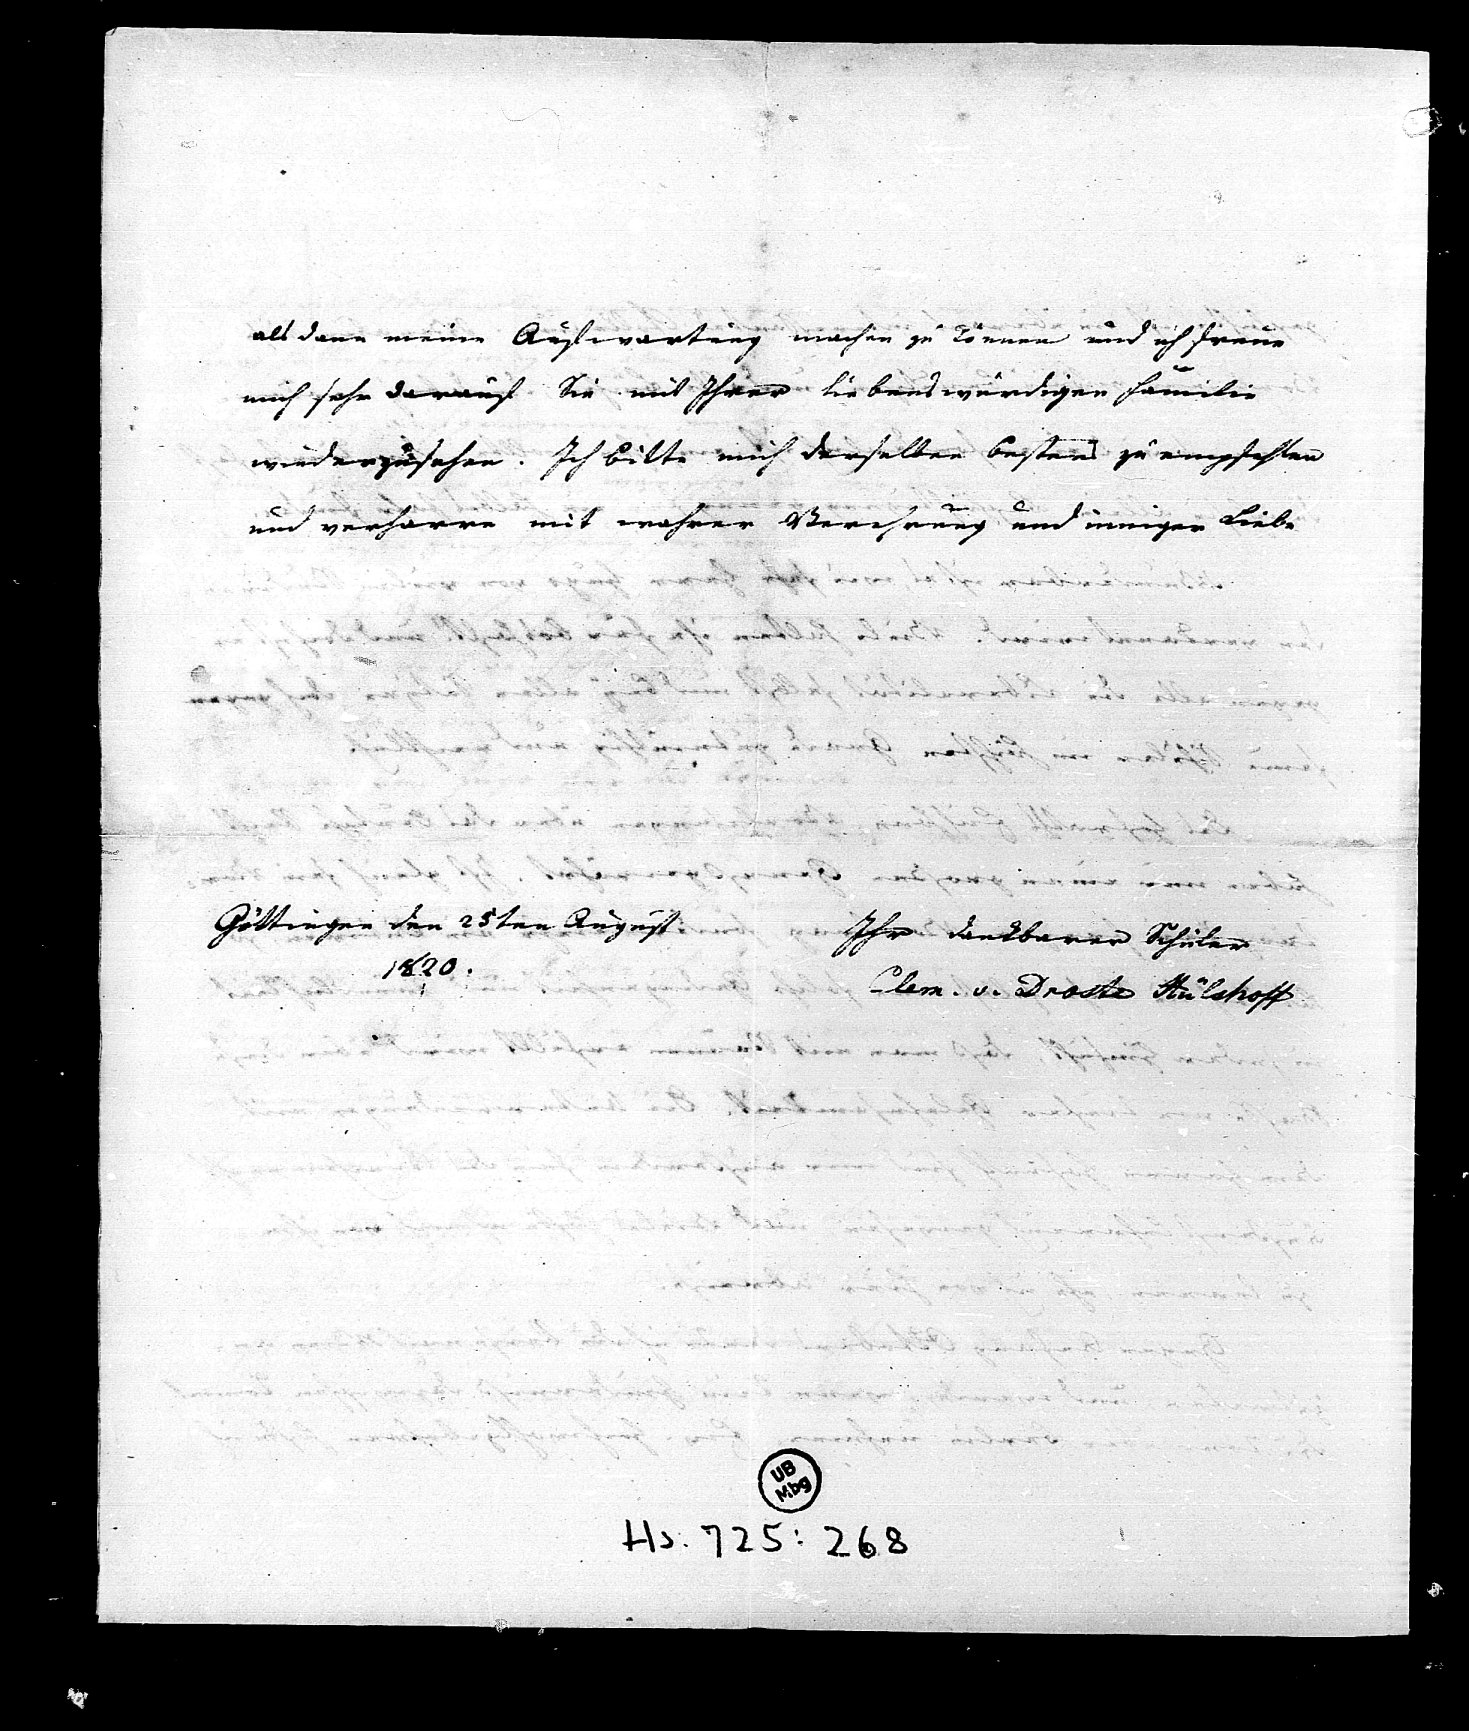 als dann meine Aufwartung machen zu können und ich freue
mich sehr darauf Sie mit Ihrer liebenswürdigen Familie
wiederzusehen. Ich bitte mich derselben bestens zu empfehlen
und verharre mit wahrer Verehrung und inniger Liebe
Göttingen den 25ten August
1820.
Ihr dankbarer Schüler
Clem. v. Droste Hülshoff
UB
Mbg
Hs. 725: 268